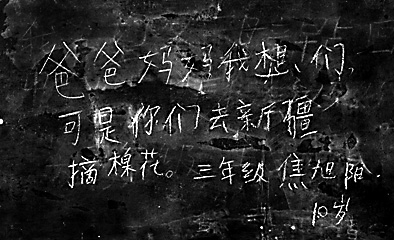 爸爸妈妈我想、们、
可是你们去新疆
摘棉花。三年级焦旭阳.
10岁